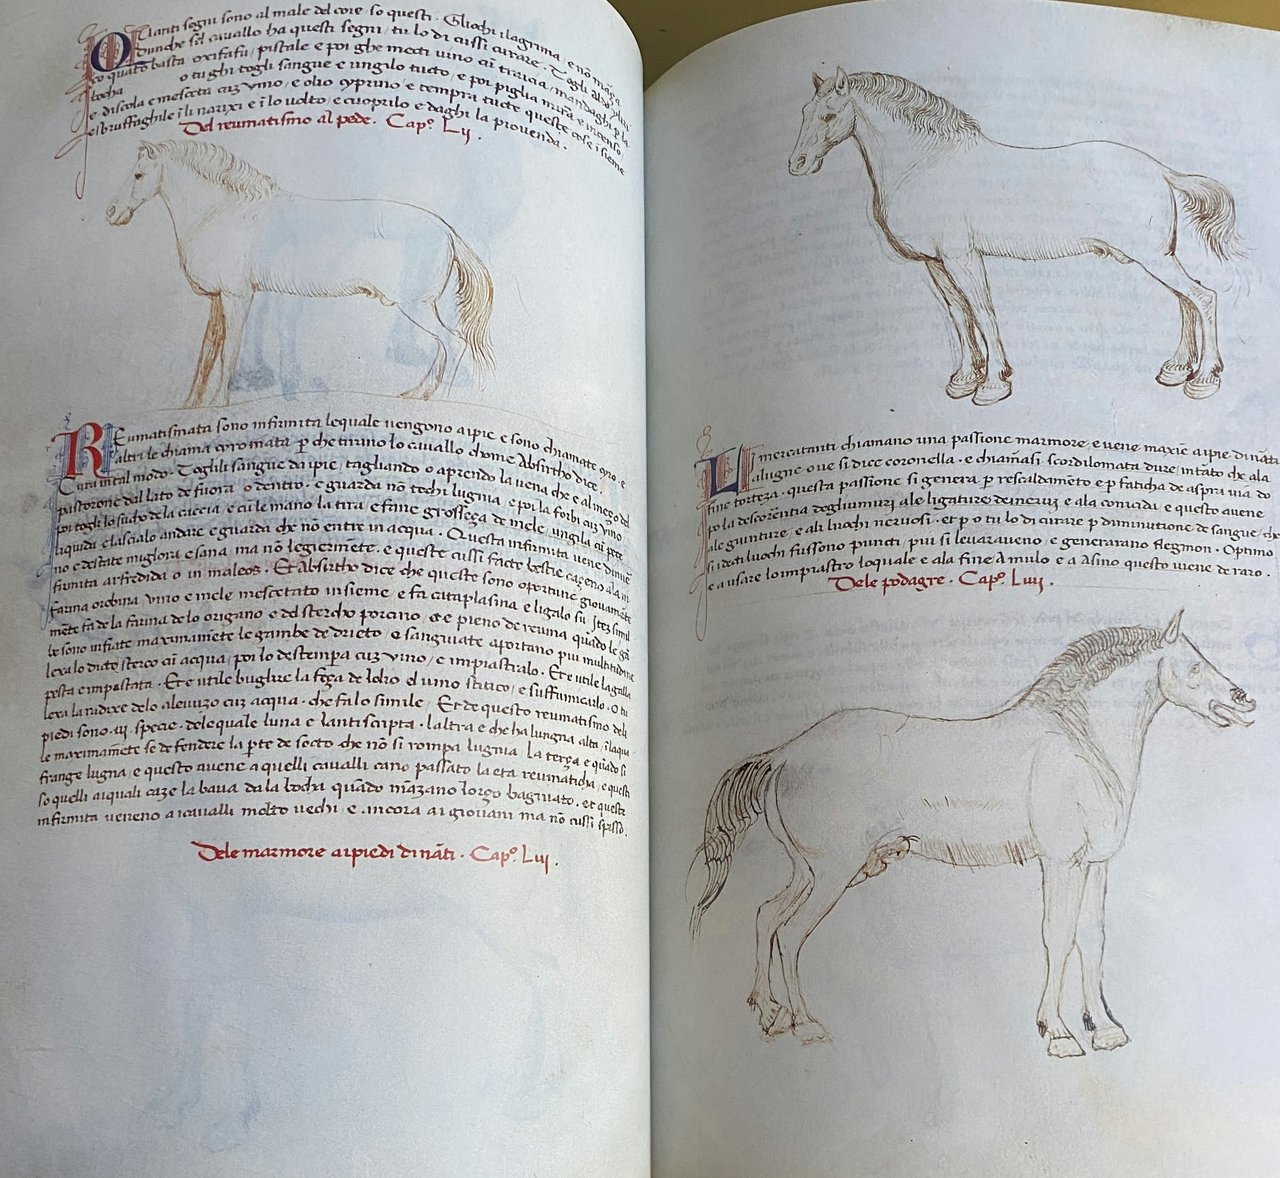 Quanti segni sono al male del core. so questi. Gliochi ilagrima, e nõ mãga
dunche sel cavallo ha questi segni, tu lo di cussi curare. Togli
co quato basta oxifafu, pistale e poi ghe metti uino cũ traicia, mandaghi p la
bocha o tughi togli sangue e ungilo tucto, e poi piglia mirra e incenso
e discola e mesceta cuz uino, e olio cyprino, e tempra tucte queste cose isieme
e sbruffaghile ili narixi e ilo uolto, e cuoprilo e daghi la prouenda.
Del reumatismo al pede. Cap.º Lij.
REumatismata sono infirmita lequale uengono aipie e sono chiamate
altri le chiama p che tirino lo cauallo chome Absirtho dice.
Cura in tal modo. Toglili sangue da ipie, tagliando o aprendo la uena che e al mezo del
pastorone dal lato de fuora o dentro. e guarda nõ tochi lugnia, e poi la forbi cuz uino
poi togli lo sucho de la e cu le mano la tira, e fane grosseça de mele, ungila cũ pece
liquida e lascialo andare e guarda che nõ entre in acqua. Questa infirmita uene
no e destate migliora e sana, ma nõ legiermẽte. e queste cussi facte bestie cazeno ala in
firmita arfredida o in maleos. Et Absirtho dice che queste sono oportune giouamẽte
farina orobina uino e mele mescetato insieme e fa cataplasma e ligalo su. Itez simil
mẽte fa de la farina de lo origano e del stercho porcino, et e pieno de reuma quãdo le gã
be sono infiate maximamẽte le gambe de drieto, e sanguinate aportano piu multitudine
leua lo dicto sterco cũ acqua, poi lo destempa cuz uino, e impiastralo. Et e utile la galla
pesta e impastata. Et e utile buglire la feça de lolio el uino stitico, e suffumicarlo. O tu
leua la radixe delo aleuizo cuz acqua. che fa lo simile. Et de questo reumatismo deli
piedi sono .iij. specie. dele quale luna e lantiscripta. laltra e che ha lungna alta, ilaqua
le maximamẽte se de fendere la pte de socto che nõ si rompa lugnia. La terça e quãdo si
frange lugna, e questo auene a quelli caualli cano passato la eta reumaticha, e questi
so quelli aiquali caze la baua da la bocha quãdo mãzano lorzo bagniato. et queste
infirmita ueneno a icaualli molto uechi e .incora ai giouani ma nõ cussi spesso.
Dele marmore aipiedi dinãti. Cap.º Liij.
LI mercatanti chiamano una passione marmore, e uene maxie aipie dinãti
alugne oue si dice coronella. e chiamasi scordilomata dure, intato che ala
fine torteza. questa passione si genera p rescaldamẽto e p faticha de aspra uia do
po la descorentia deglhumuri ale ligature deincruz e ala comicida e questo auene
ale giunture, e ali luochi neruosi. et p o tu lo di curare p diminutione de sangue, che
si idcti luochi fussono puncti, piu si leuarauenno, e generarano flegmon. Optimo
e a usare lo impiastro loquale e ala fine A mulo e a Asino questo uiene de raro.
Dele podagre. Cap.º Liiij.